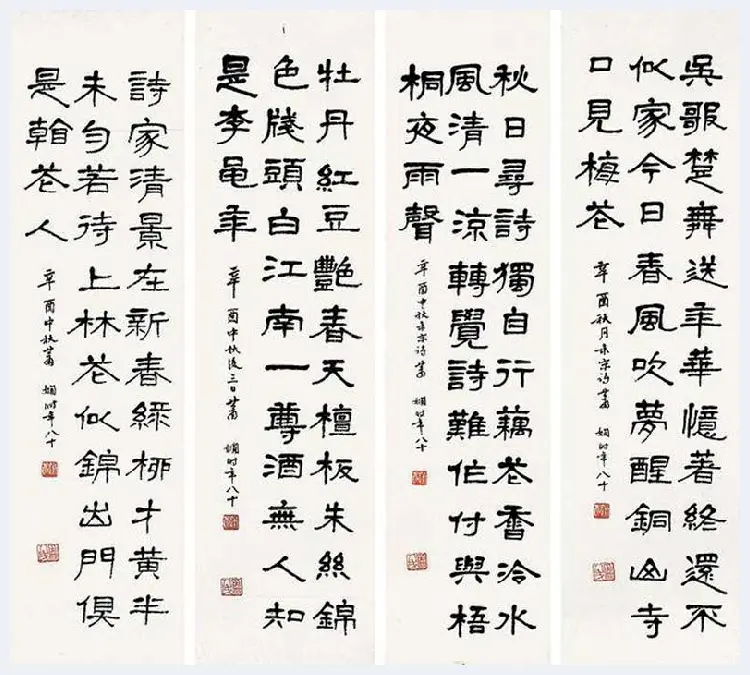 吳歌楚舞送年華憶著終還不
似家今日春風吹夢醒銅山寺
口見梅花
辛酉秋月录宋诗 萧娴时年八十
秋日尋詩獨自行藕花香冷水
風清一涼轉覺詩難作付與梧
桐夜雨聲
辛酉中秋录宋诗 萧娴时年八十
牡丹紅豆艷春天檀板朱絲錦
色牋頭白江南一尊酒無人知
是李龜年
辛酉中秋後三日 萧娴时年八十
詩家清景在新春綠柳才黃半
未勻若待上林花似錦出門俱
是看花人
辛酉中秋 萧娴时年八十